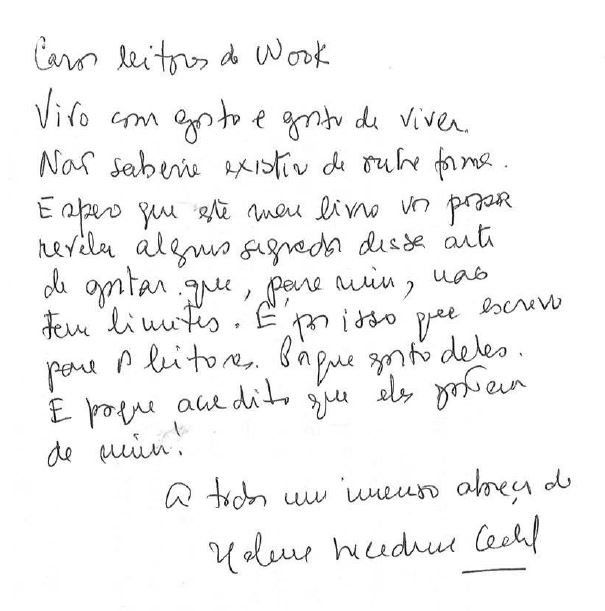 Caros leitores da Wook
Vivo com gosto e gosto de viver.
Não saberia existir de outra forma.
Espero que este meu livro vos possa
revelar alguns segredos dessa arte
de gostar que, para mim, não
tem limites. É por isso que escrevo
para os leitores. Porque gosto deles.
E porque acredito que eles gostem
de mim!
A todos um imenso abraço da
Helena Sacadura Cabral